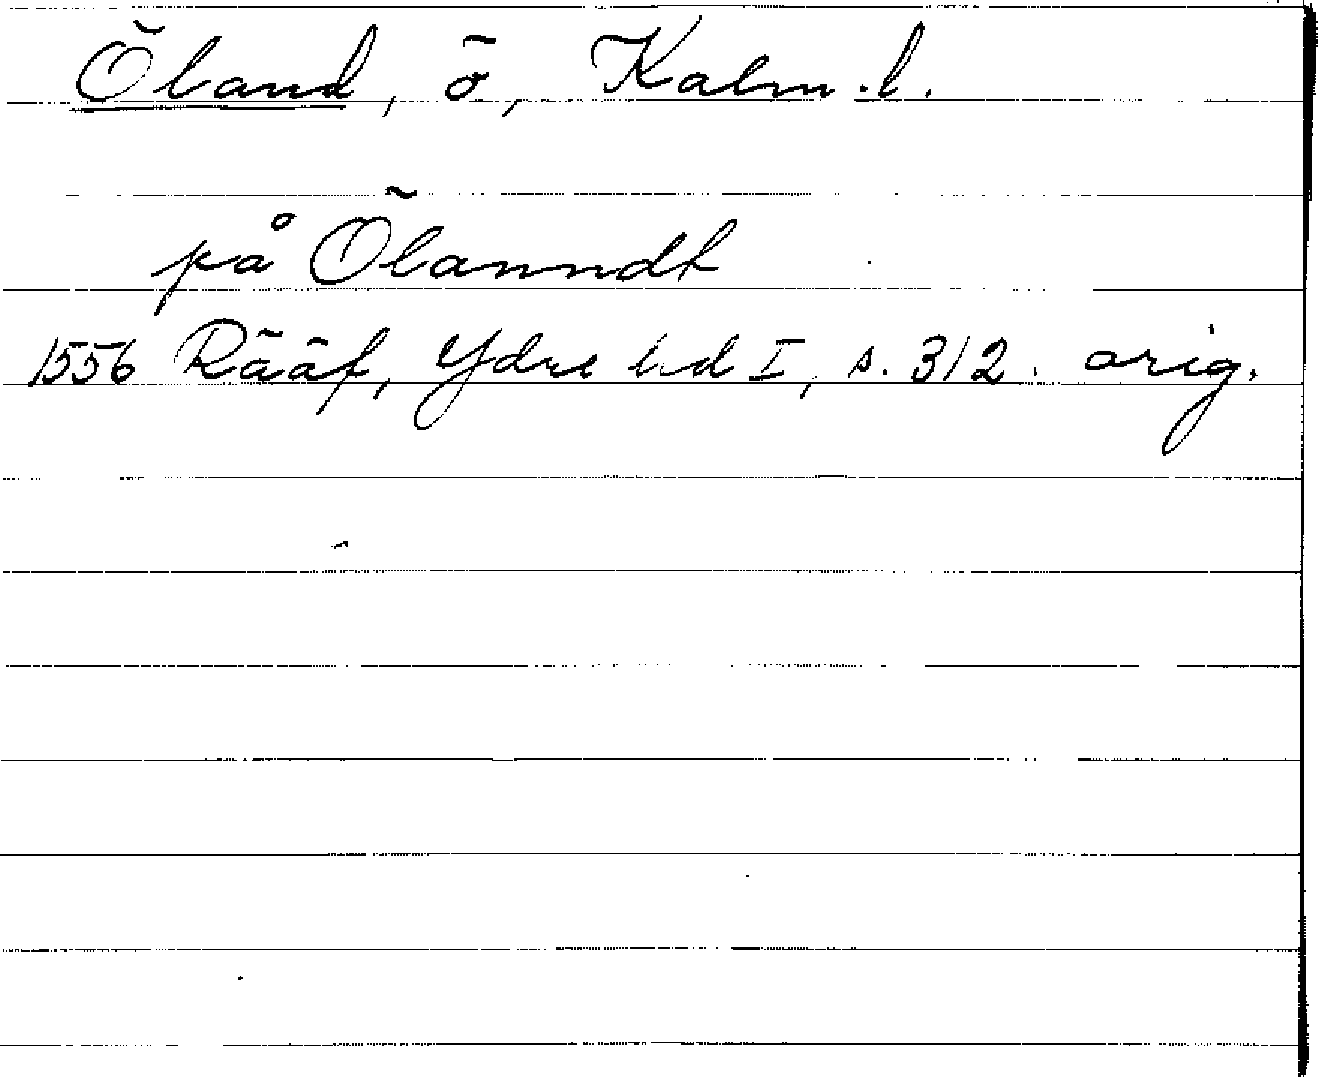 Öland, ö, Kalm.l.
på Ölanndt
1556 Rääf, Ydre hd I, s. 312. orig.